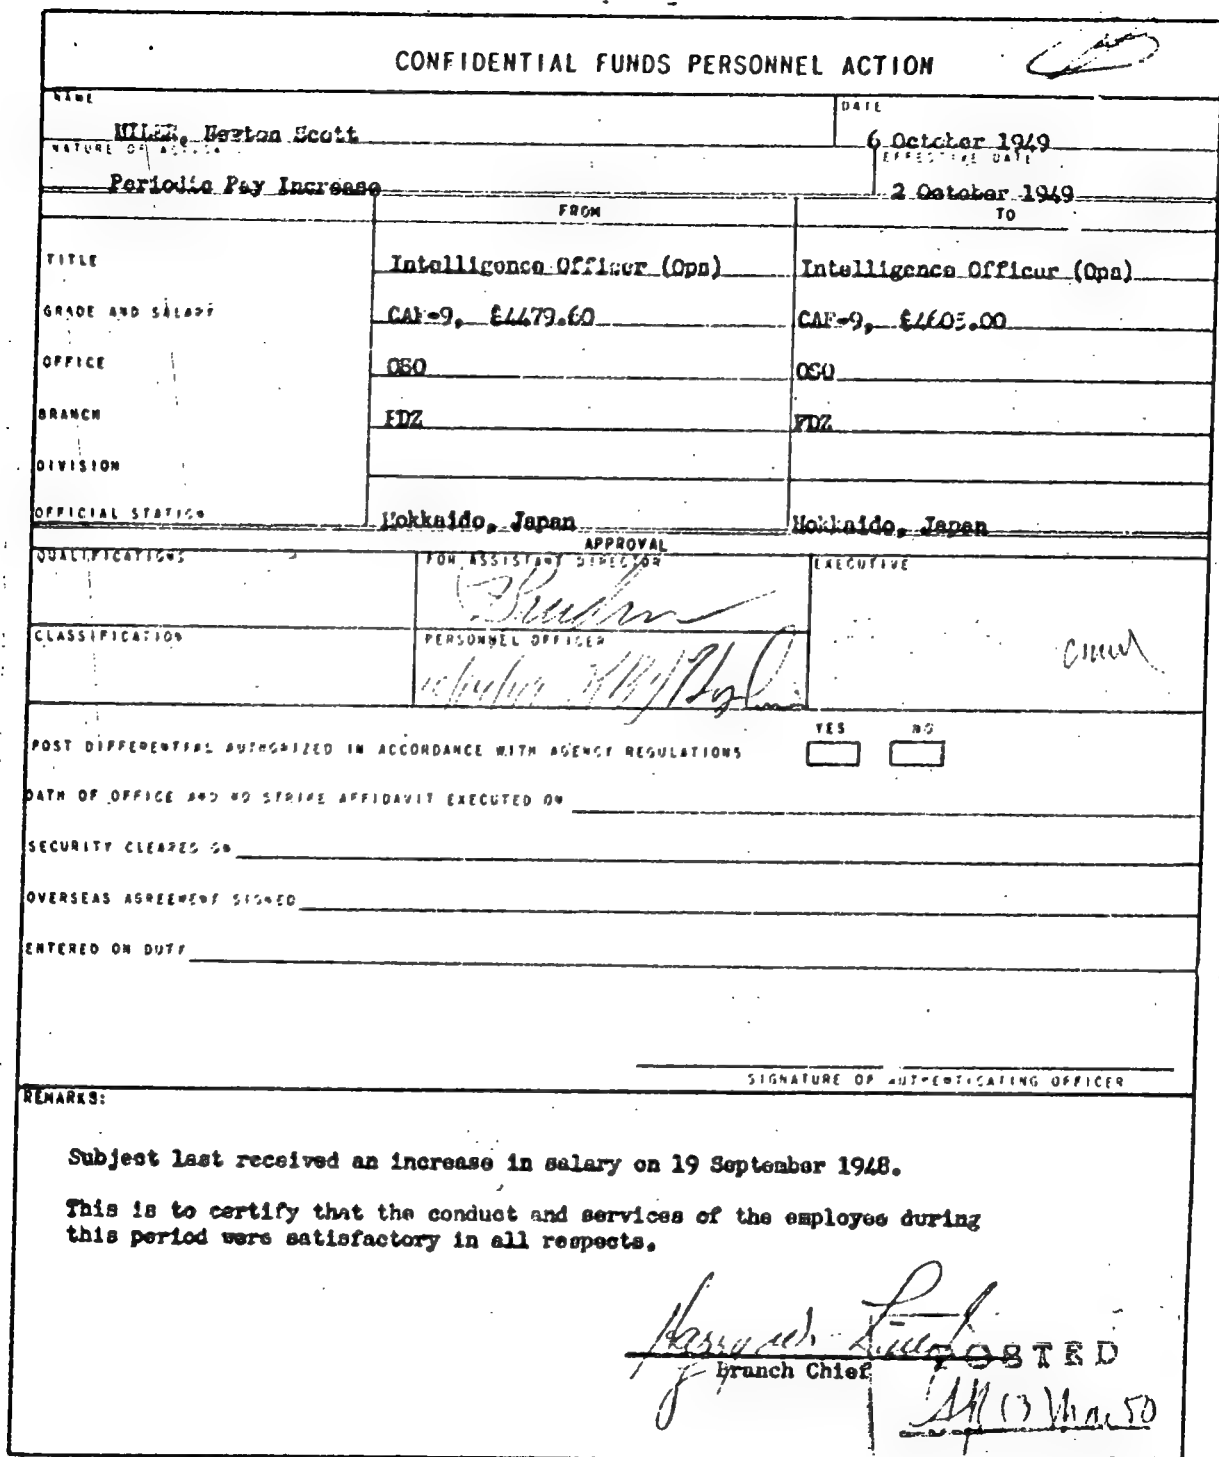 CONFIDENTIAL FUNDS PERSONNEL ACTION
NAME
DATE
MILER, Newton Scott
6 October 1949
NATURE OF ACTION
EFFECTIVE DATE
Periodic Pay Increase
2 October 1949
FROM
TO
TITLE
Intelligence Officer (Ops)
Intelligence Officer (Ops)
GRADE AND SALARY
CAF-9, $4479.60
CAF-9, $4605.00
OFFICE
OSO
OSO
BRANCH
FDZ
FDZ
DIVISION
OFFICIAL STATION
Hokkaido, Japan
Hokkaido, Japan
APPROVAL
QUALIFICATIONS
FOR ASSISTANT DIRECTOR
EXECUTIVE
CLASSIFICATION
PERSONNEL OFFICER
YES
NO
POST DIFFERENTIAL AUTHORIZED IN ACCORDANCE WITH AGENCY REGULATIONS
OATH OF OFFICE AND NO STRIKE AFFIDAVIT EXECUTED ON
SECURITY CLEARED ON
OVERSEAS AGREEMENT SIGNED
ENTERED ON DUTY
SIGNATURE OF AUTHENTICATING OFFICER
REMARKS:
Subject last received an increase in salary on 19 September 1948.
This is to certify that the conduct and services of the employee during
this period were satisfactory in all respects.
POSTED
Branch Chief
13 Mar 50